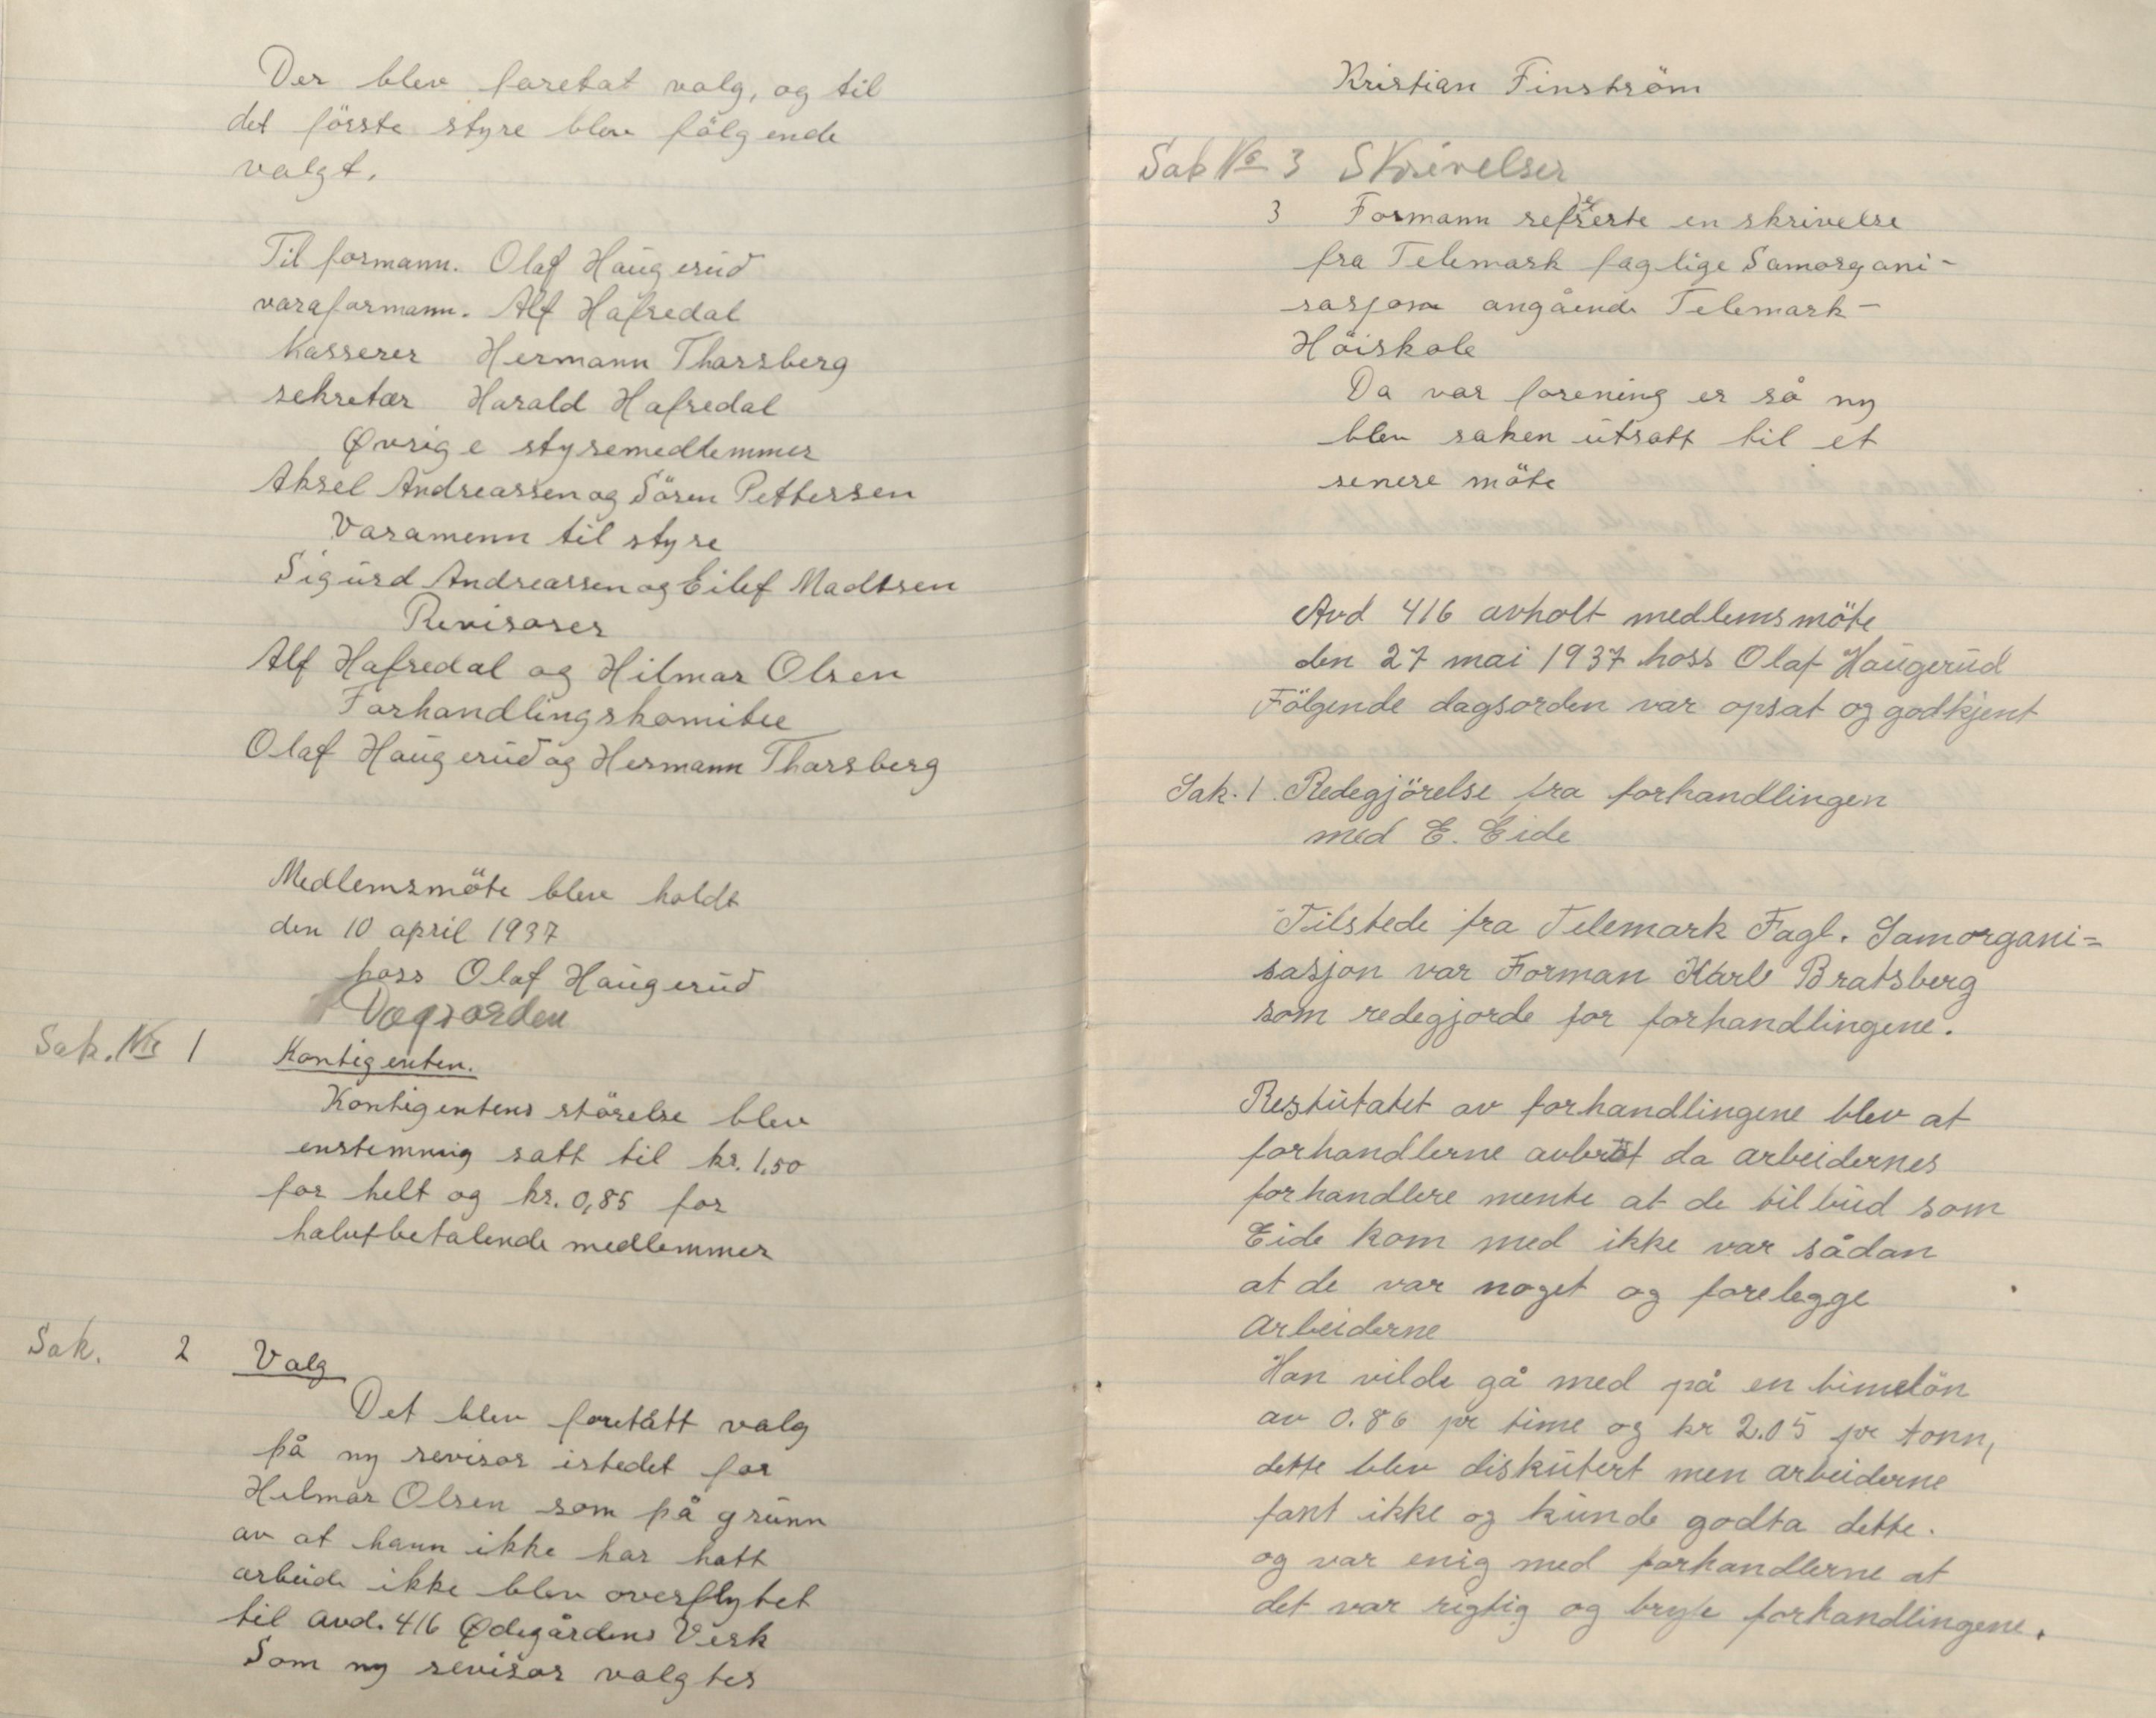 Der blev foretat valg, og til
det förste styre blev fölgende
valgt.
Til formann. Olaf Haugerud
varaformann. Alf Hafredal
Kasserer Hermann Thorsberg
sekretær Harald Hafredal
Øvrige styremedlemmer
Aksel Andreassen og Sören Pettersen
Varamenn til styre
Sigurd Andreassen og Eilef Madtsen
Revisorer
Alf Hafredal og Hilmar Olsen
Forhandlingskomitee
Olaf Haugerud og Hermann Thorsberg
Medlemsmöte blev holdt
den 10 april 1937
hoss Olaf Haugerud
Dagsorden
Sak. No 1 Kontigenten.
Kontigentens störelse blev
enstemmig satt til kr. 1,50
for helt og kr. 0,85 for
halvtbetalende medlemmer
Sak. 2 Valg
Det blev foretatt valg
på ny revisor istedet for
Hilmar Olsen som på grunn
av at hann ikke har hatt
arbeide ikke blev overflytet
til avd. 416 Ødegårdens Verk
Som ny revisor valgtes
Kristian Finström
Sak No 3 Skrivelser
3 Formann refererte en skrivelse
fra Telemark faglige Samorgani-
sasjon angående Telemark-
Höiskole
Da vor forening er så ny
blev saken utsatt til et
senere möte
Avd 416 avholt medlemsmöte
den 27 mai 1937 hoss Olaf Haugerud
Fölgende dagsorden var opsat og godkjent
Sak. 1. Redegjörelse fra forhandlingen
med E. Eide
Tilstede fra Telemark Fagl. Samorgani=
sasjon var Forman Karl Bratsberg
som redegjorde for forhandlingene.
Restutatet av forhandlingene blev at
forhandlerne avbröt da arbeidernes
forhandlere mente at de tilbud som
Eide kom med ikke var sådan
at de var noget og forelegge
arbeiderne
Han vilde gå med på en timelön
av 0.86 pr time og kr 2.05 pr tonn,
dette blev diskutert men arbeiderne
fant ikke og kunde godta dette.
og var enig med forhandlerne at
det var rigtig og bryte forhandlingene.